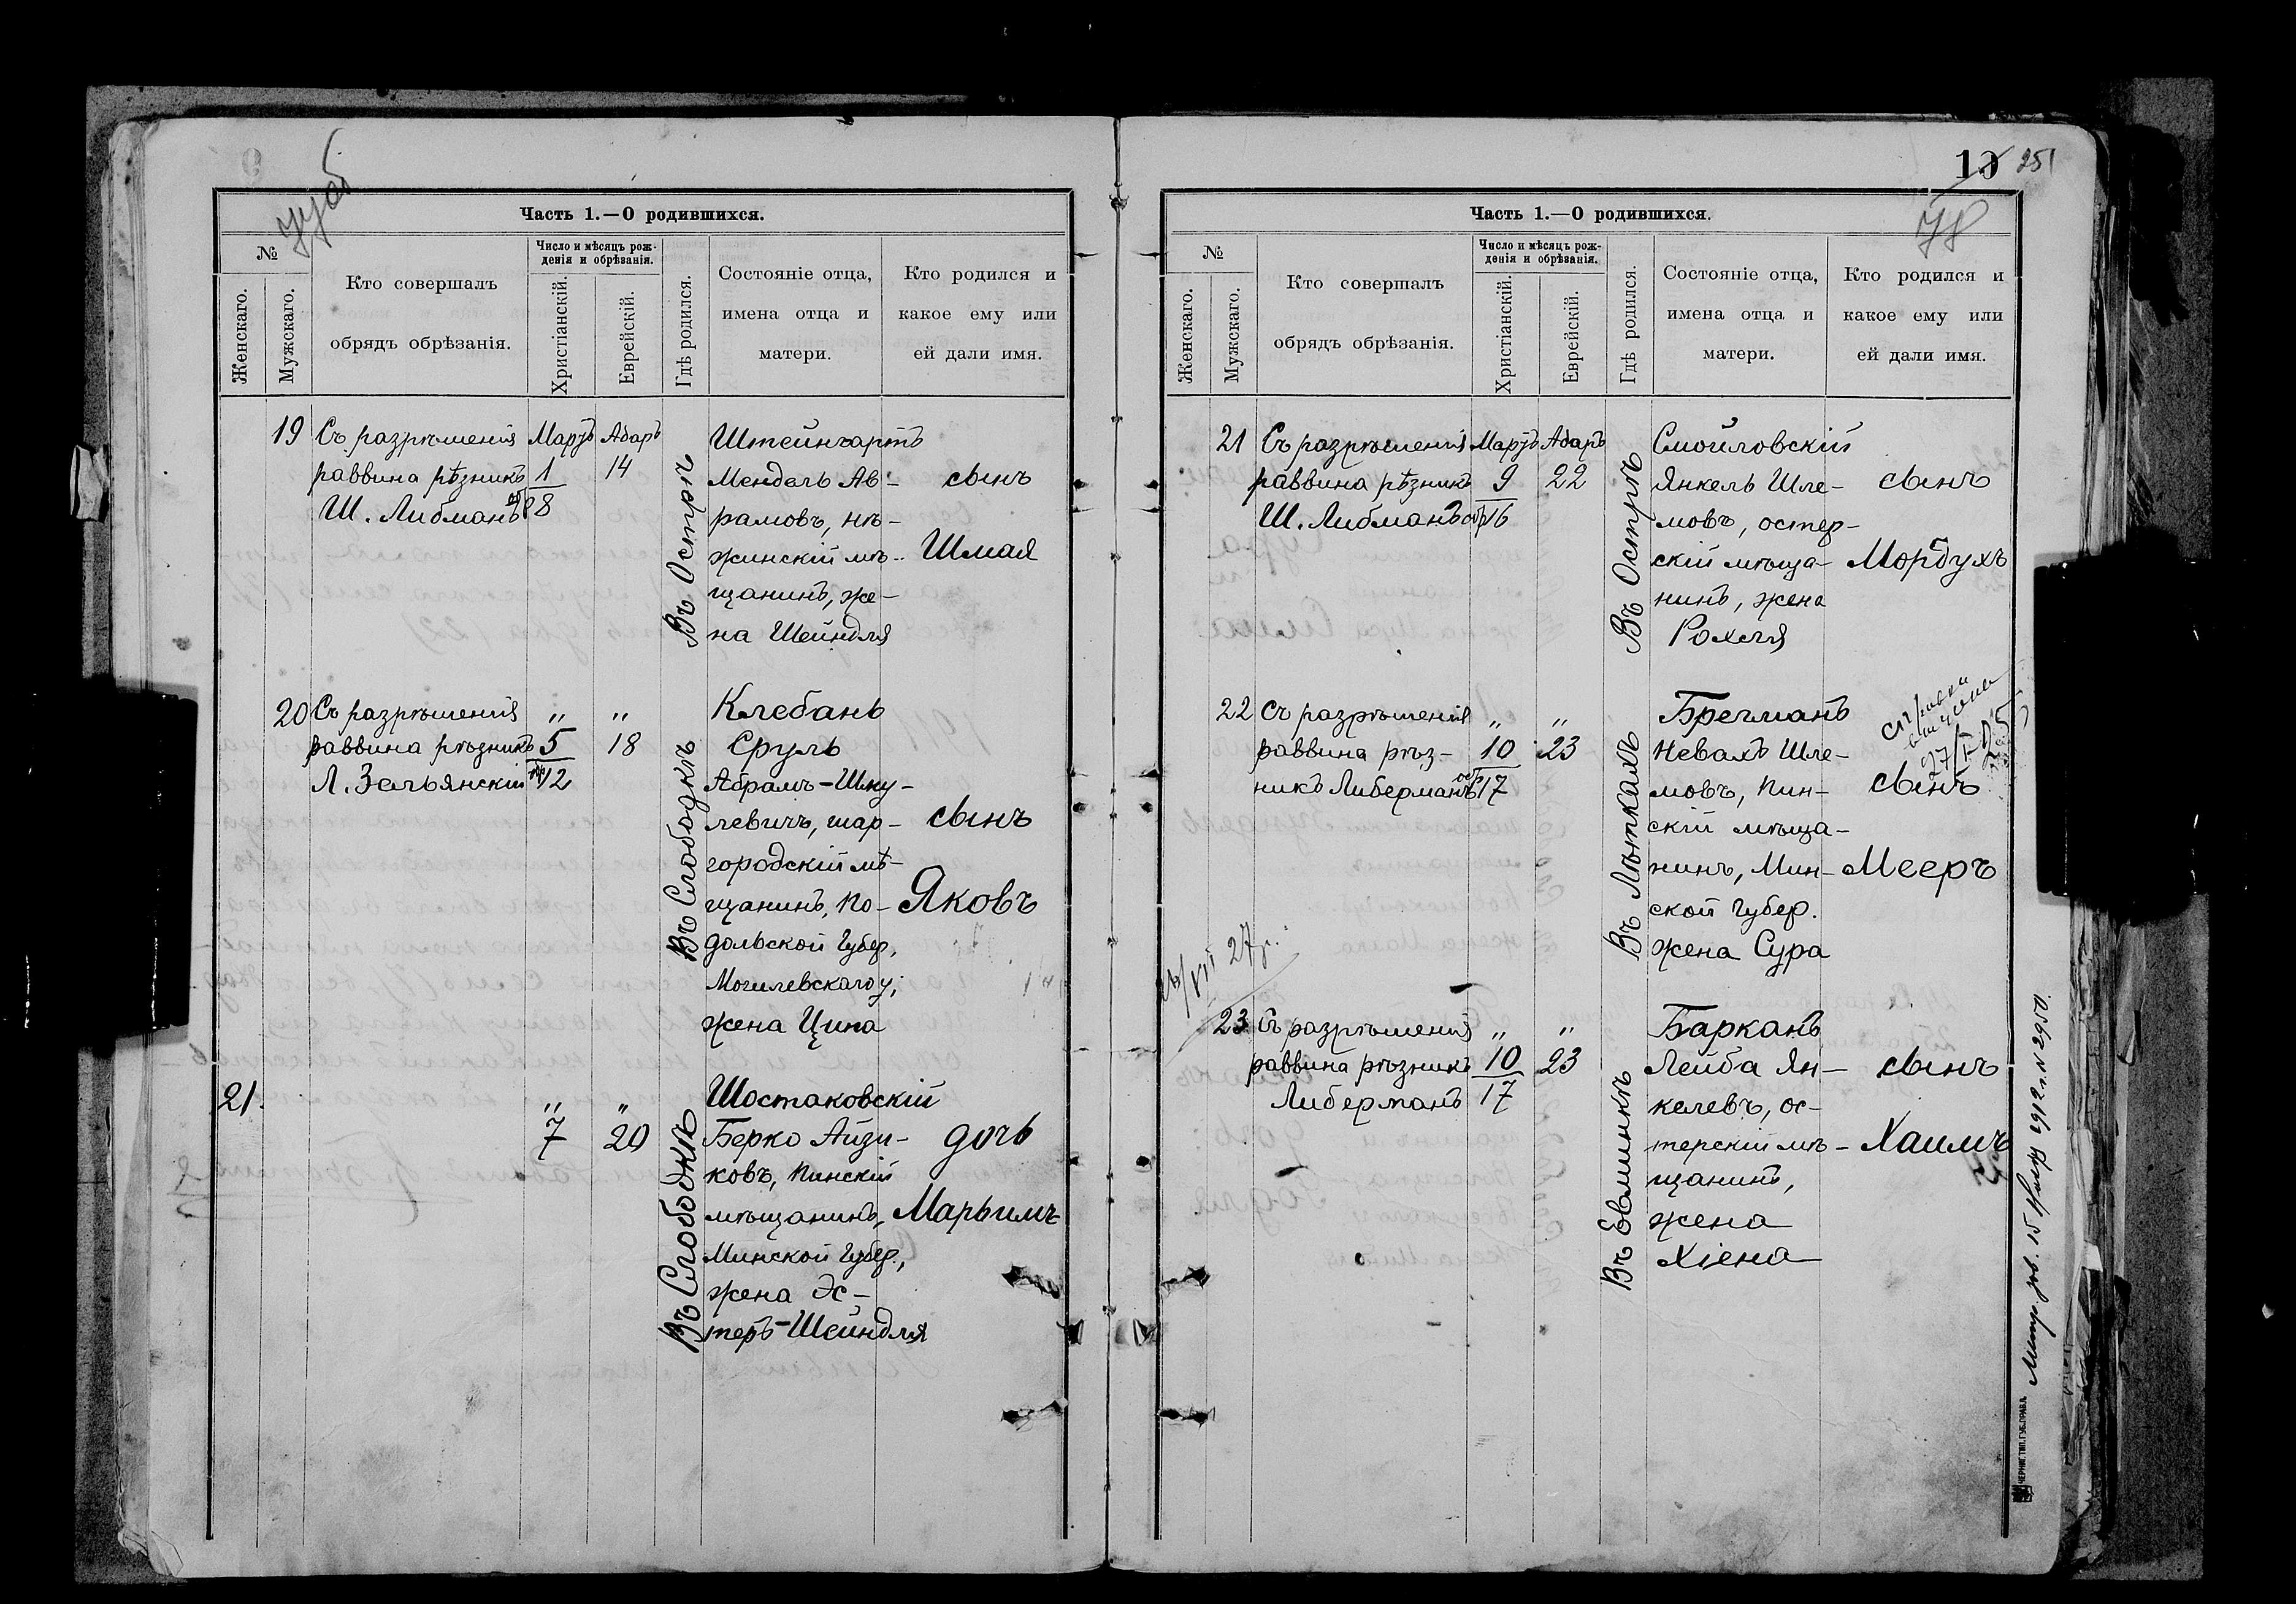 Часть 1.—О родившихся.
№
Женскаго.
Мужскаго.
Кто совершалъ
обрядъ обрѣзанія.
Число и мѣсяцъ рож-
денія и обрѣзанія.
Христіанскій.
Еврейскій.
Гдѣ родился.
Состояніе отца,
имена отца и
матери.
Кто родился и
какое ему или
ей дали имя.
19
Съ разрѣшенія
раввина рѣзникъ
Ш. Либманъ
Мартъ
1
обр 8
Адаръ
14
Въ Острѣ
Штейнгартъ
Мендель Ав-
рамовъ, нѣ-
жинскій мѣ-
щанинъ, же-
на Шейндля
сынъ
Шмая
20
Съ разрѣшенія
раввина рѣзникъ
Л. Зельянскій
„
5
обр 12
„
18
Въ Слободкѣ
Клебань
Сруль
Абрамъ-Шму-
левичъ, шар-
городскій мѣ-
щанинъ, По-
дольской Губер,
Могилевскаго у,
жена Ципа
сынъ
Яковъ
21.
„
7
„
20
Въ Слободкѣ
Шостаковскій
Берко Айзи-
ковъ, Пинскій
мѣщанинъ,
Минской Губер.,
жена Эс-
теръ-Шейндля
дочь
Марьимъ
10 251
78
Часть 1.—О родившихся.
№
Женскаго.
Мужскаго.
Кто совершалъ
обрядъ обрѣзанія.
Число и мѣсяцъ рож-
денія и обрѣзанія.
Христіанскій.
Еврейскій.
Гдѣ родился.
Состояніе отца,
имена отца и
матери.
Кто родился и
какое ему или
ей дали имя.
21
Съ разрѣшенія
раввина рѣзникъ
Ш. Либманъ
Мартъ
9
обр 16
Адаръ
22
Въ Острѣ
Смойловскій
Янкель Шле-
мовъ, остер-
скій мѣща-
нинъ, жена
Рохля
сынъ
Мордухъ
22
Съ разрѣшенія
раввина рѣз-
никъ Либерманъ
„
10
обр 17
„
23
Въ Лѣткахъ
Брегманъ
Невахъ Шле-
мовъ, Пин-
скій мѣща-
нинъ, Мин-
ской Губер.
жена Сура
сынъ
Мееръ
23
Съ разрѣшенія
раввина рѣзникъ
Либерманъ
„
10
17
„
23
Въ Евминкѣ
Барканъ
Лейба Ян-
келевъ, ос-
терскій мѣ-
щанинъ,
жена
Хіена
сынъ
Хаимъ
1912 г. N 2950.
ЧЕРНИГ. ТИП. ГУБ. ПРАВЛ.